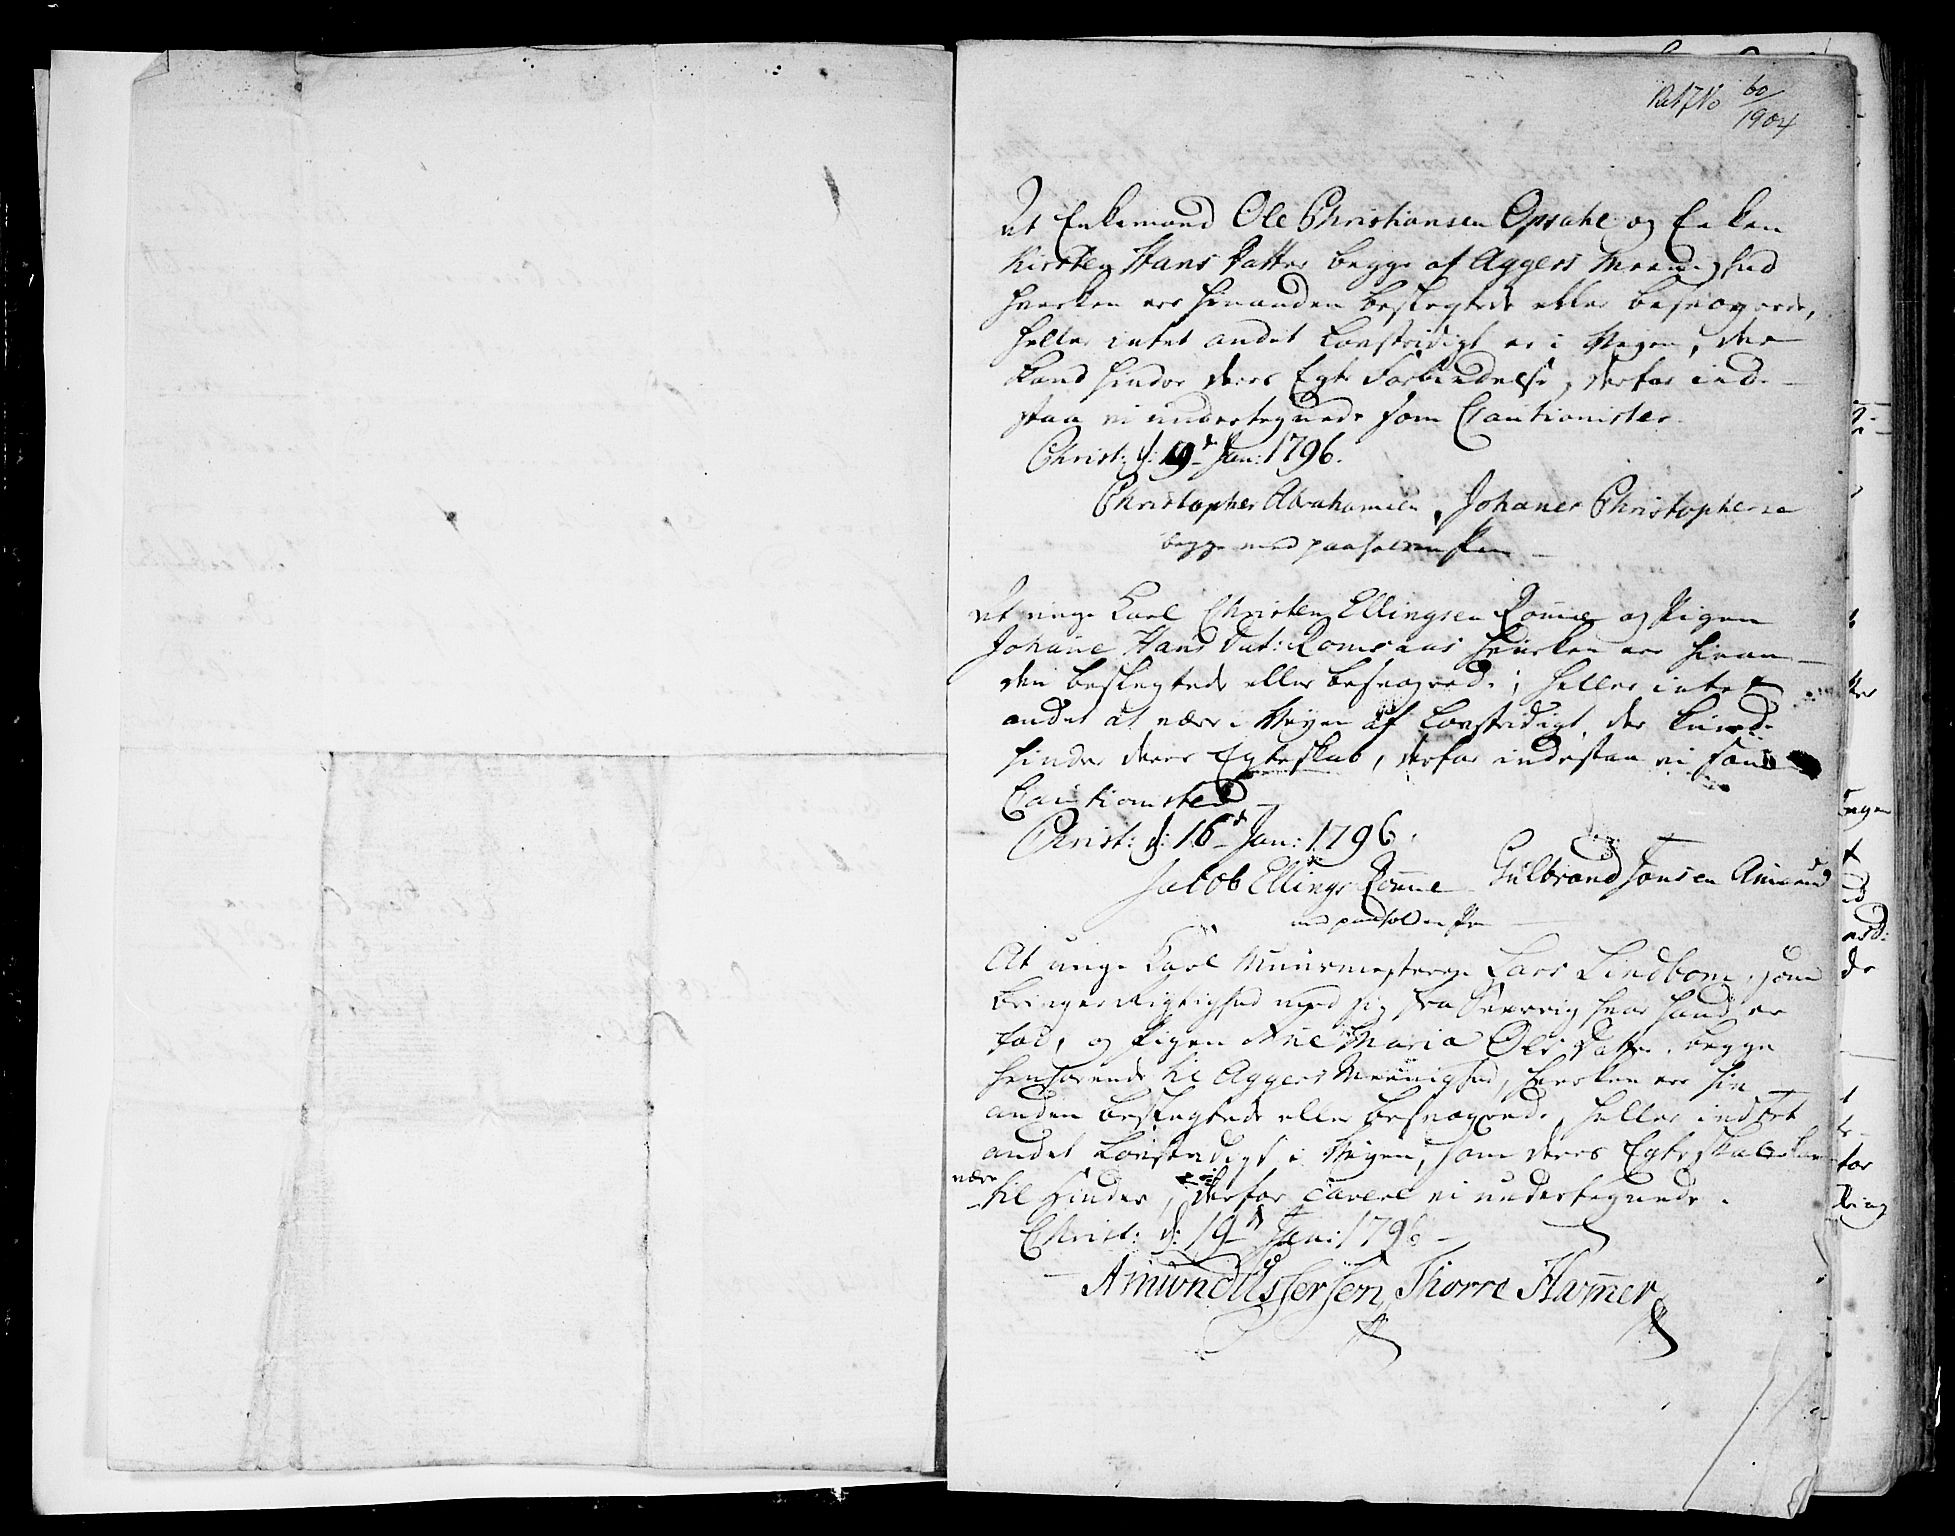 60/1904
At Enkemand Ole Christiansen Opsahl og Enken
Kirsten Hans Datter begge af Aggers Meenighed
hverken ere hinanden beslegtede eller besvogrede,
heller intet andet Lovstridigt er i Vejen, der
kand hindre deres Egte Forbindelse, derfor inde-
staa vi undertegnede som Cautionister.
Christ: d: 9d Jan: 1796.
Christopher Abrahamsen, Johanes Christophersen
begge med paaholden Pen
At unge Karl Christen Ellingsen Rønne og Pigen
Johane Hans Dat: Romsaas hverken ere hinan-
den beslegtede eller besvogrede; heller intet
andet at være i Vejen af Lovstridigt, der kunde
hindre deres Egteskab, derfor indestaa vi som
Cautionister
Christ: d: 16d Jan: 1796.
Jacob Ellings: Rønne Gulbrand Jonsen
med paaholden Pen
At unge Karl Muurmestersv: Lars Lindbom, som
bringer Rigtighed med sig fra Sverrig hvor hand er
fød, og Pigen Ane Maria Ols Datter, begge
henhørende til Aggers Meenighed, hverken ere hin-
anden beslegtede eller besvogrede, heller intet
andet Lovstridigt i Vejen, som deres Egteskab kan
være
til Hinder, derfor cavere vi undertegnede.
Christ: d: 19d Jan: 1796
Amund Assersen, Thorre Hamer